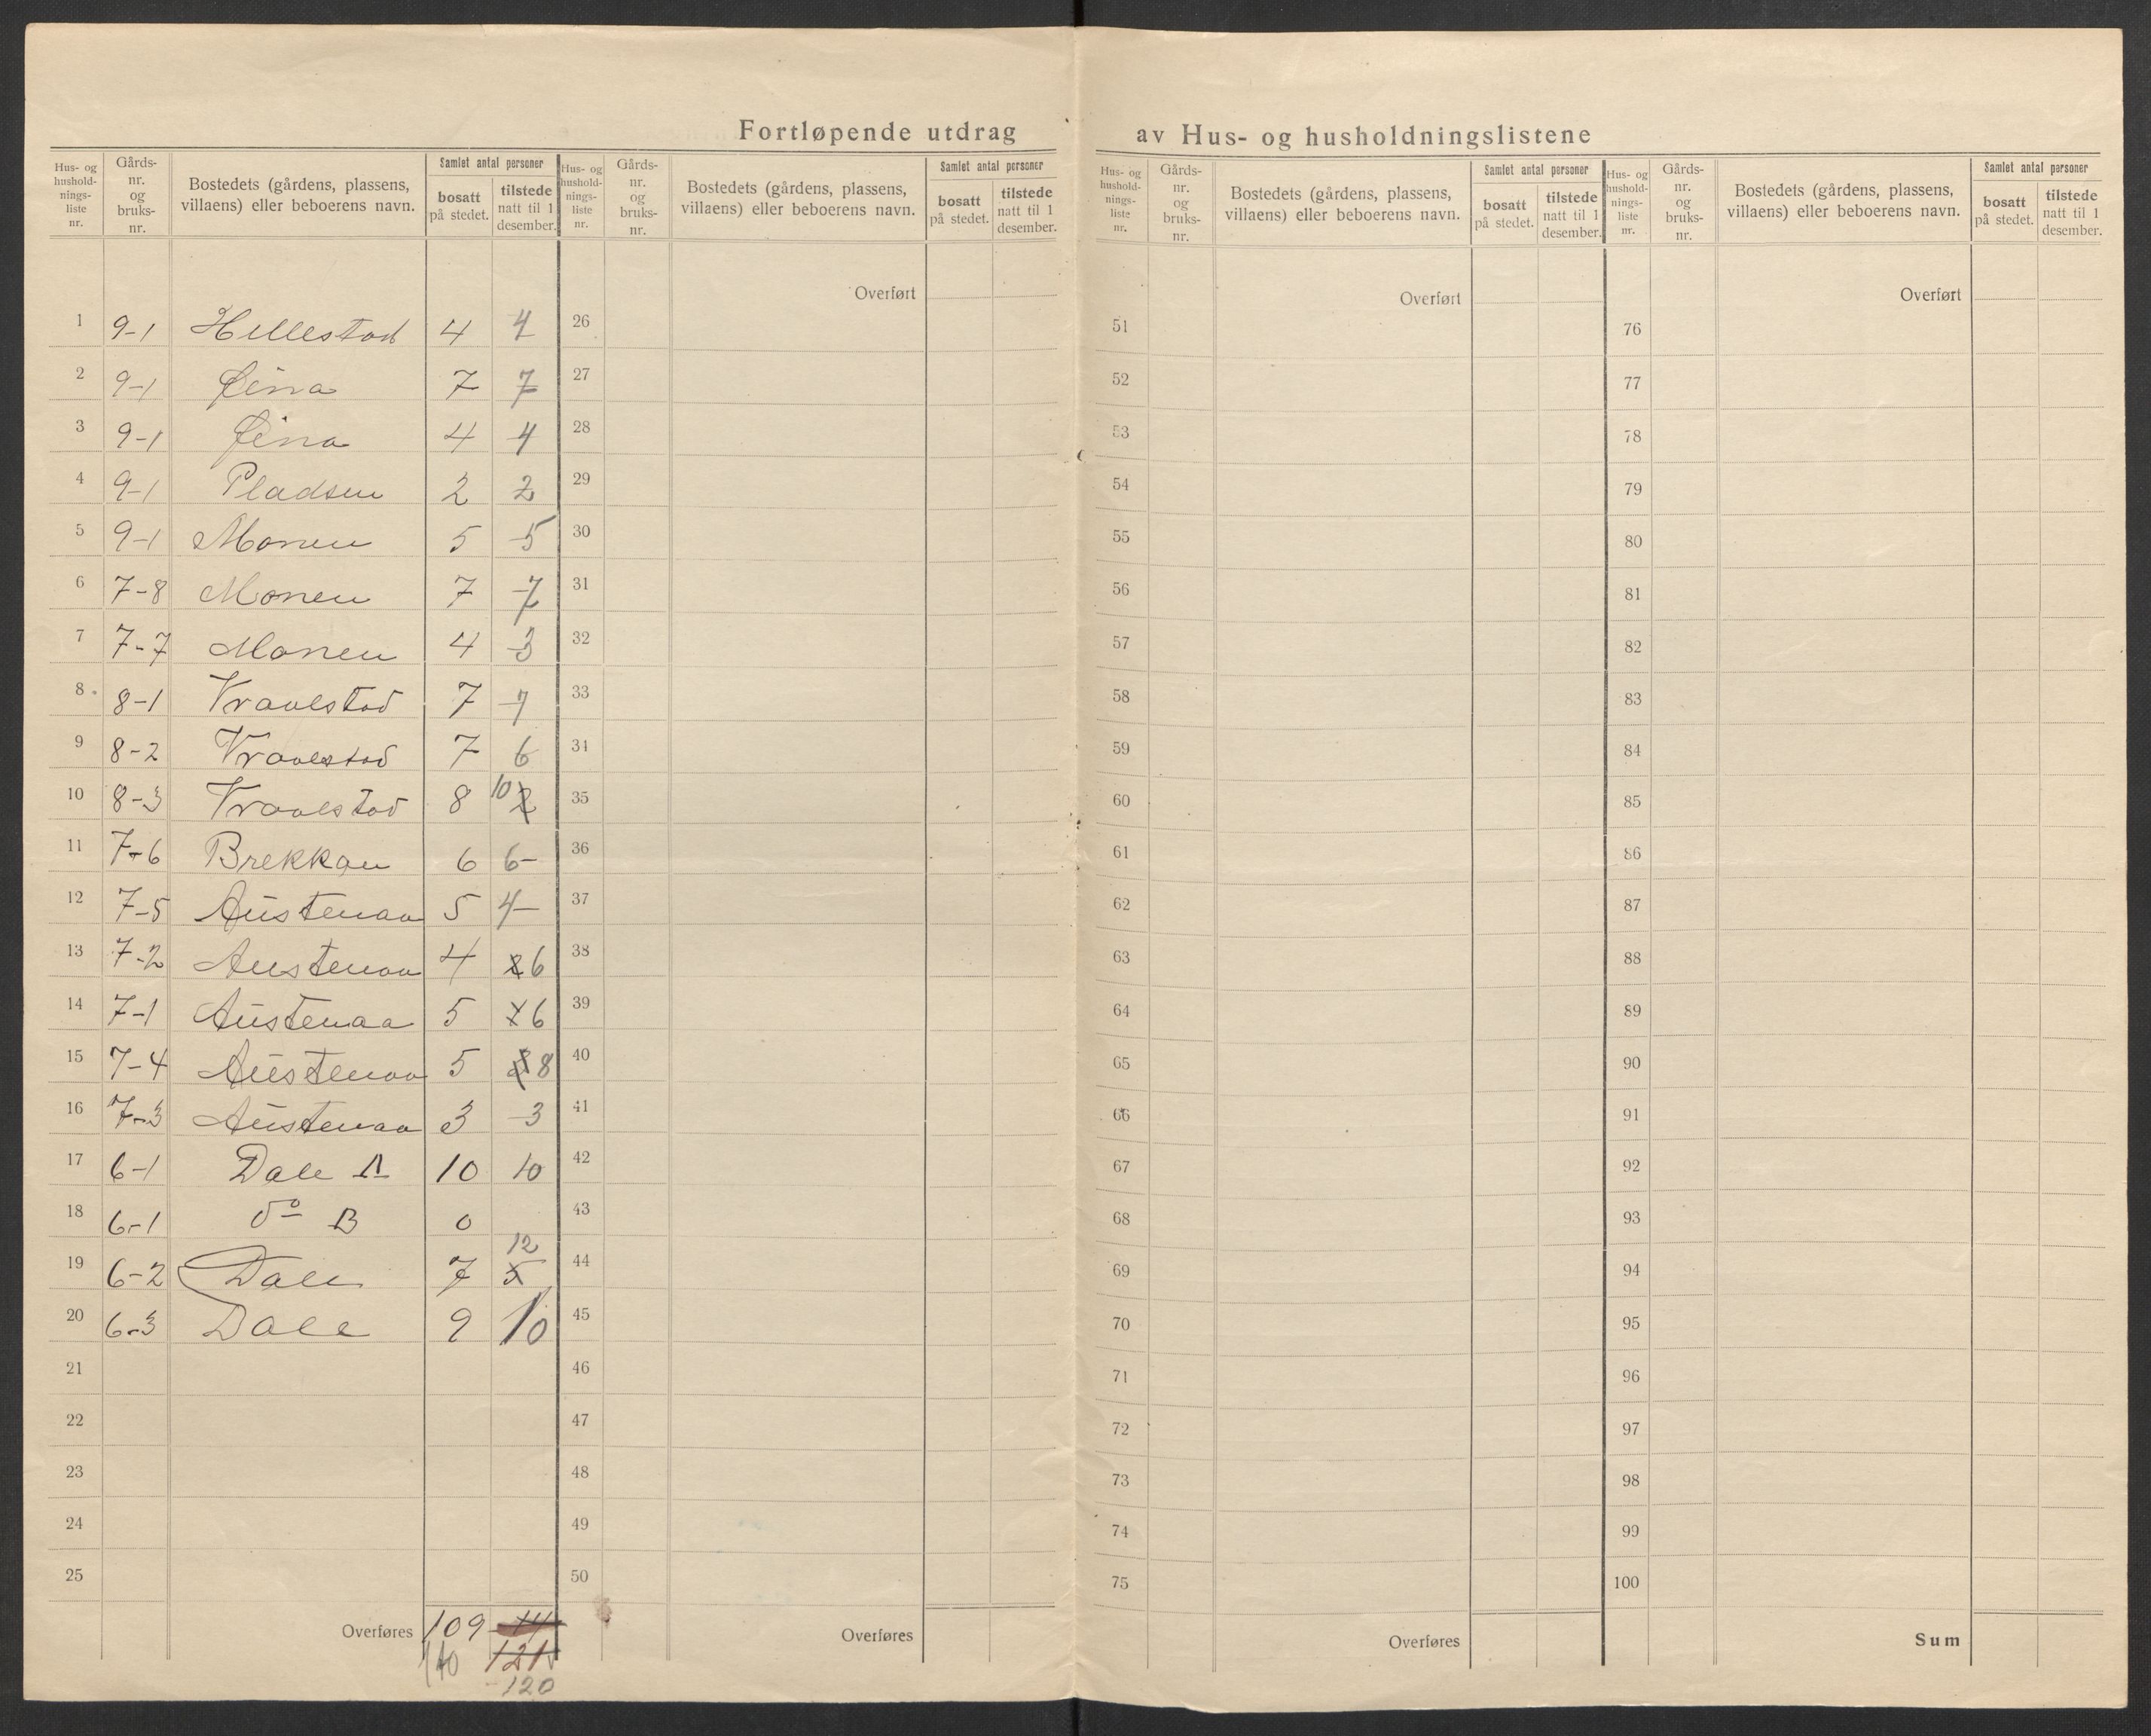 Fortløpende utdrag av Hus- og husholdningslistene
Hus- og hushold-nings-liste nr. | Gårds-nr. og bruks-nr. | Bostedets (gårdens, plassens, villaens) eller beboerens navn. | Samlet antal personer | bosatt på stedet. | tilstede natt til 1 desember.
Hus- og hushold-nings-liste nr. | Gårds-nr. og bruks-nr. | Bostedets (gårdens, plassens, villaens) eller beboerens navn. | Samlet antal personer | bosatt på stedet. | tilstede natt til 1 desember.
Hus- og hushold-nings-liste nr. | Gårds-nr. og bruks-nr. | Bostedets (gårdens, plassens, villaens) eller beboerens navn. | Samlet antal personer | bosatt på stedet. | tilstede natt til 1 desember.
Hus- og hushold-nings-liste nr. | Gårds-nr. og bruks-nr. | Bostedets (gårdens, plassens, villaens) eller beboerens navn. | Samlet antal personer | bosatt på stedet. | tilstede natt til 1 desember.
1 9-1 Hillestad 4 4
2 9-1 Øina 7 7
3 9-1 Øina 4 4
4 9-1 Pladsen 2 2
5 9-1 Monen 5 5
6 7-8 Monen 7 7
7 7-7 Monen 4 3
8 8-1 Vraalstad 7 7
9 8-2 Vraalstad 7 6
10 8-3 Vraalstad 8 10
11 7-6 Brekkan 6 6
12 7-5 Austenaa 5 4
13 7-2 Austenaa 4 6
14 7-1 Austenaa 5 6
15 7-4 Austenaa 5 8
16 7-3 Austenaa 3 3
17 6-1 Dale A 10 10
18 6-1 do B 0
19 6-2 Dale 7 5 12
20 6-3 Dale 9 10
21
22
23
24
25
Overføres 109
110 121
120
Overført
26
27
28
29
30
31
32
33
34
35
36
37
38
39
40
41
42
43
44
45
46
47
48
49
50
Overføres
Overført
51
52
53
54
55
56
57
58
59
60
61
62
63
64
65
66
67
68
69
70
71
72
73
74
75
Overføres
Overført
76
77
78
79
80
81
82
83
84
85
86
87
88
89
90
91
92
93
94
95
96
97
98
99
100
Sum